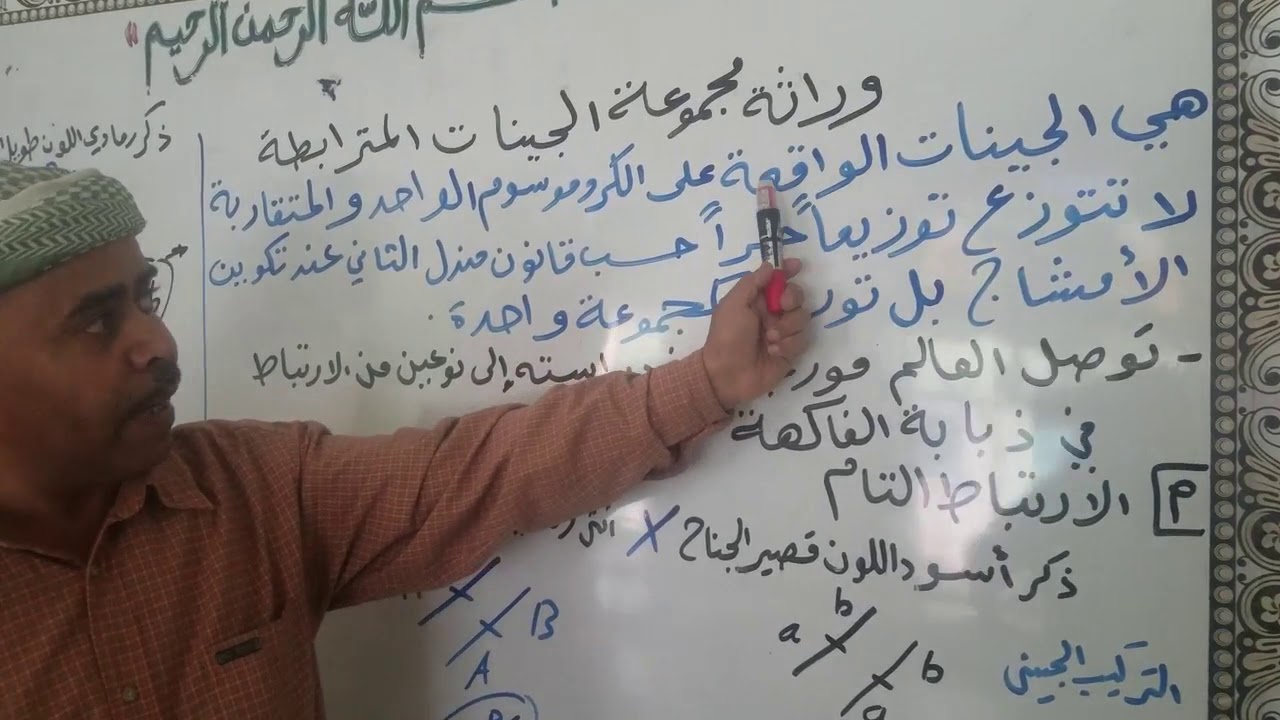 الله الرحمن الرحيم "
وراثة مجموعة الجينات المترابطة
هي الجينات الواقعة على الكروموسوم الواحد والمتقاربة
لا تتوزع توزيعاً حراً حسب قانون مندل الثاني عند تكوين
الأمشاج بل كمجموعة واحدة.
- توصل العالم إلى نوعين من الارتباط
في ذبابة الفاكهة
م الارتباط التام
ذكر أسود اللون قصير الجناح X أنثى
التركيب الجيني
b
a
b
a
B
A
ذكر رمادي اللون طويل